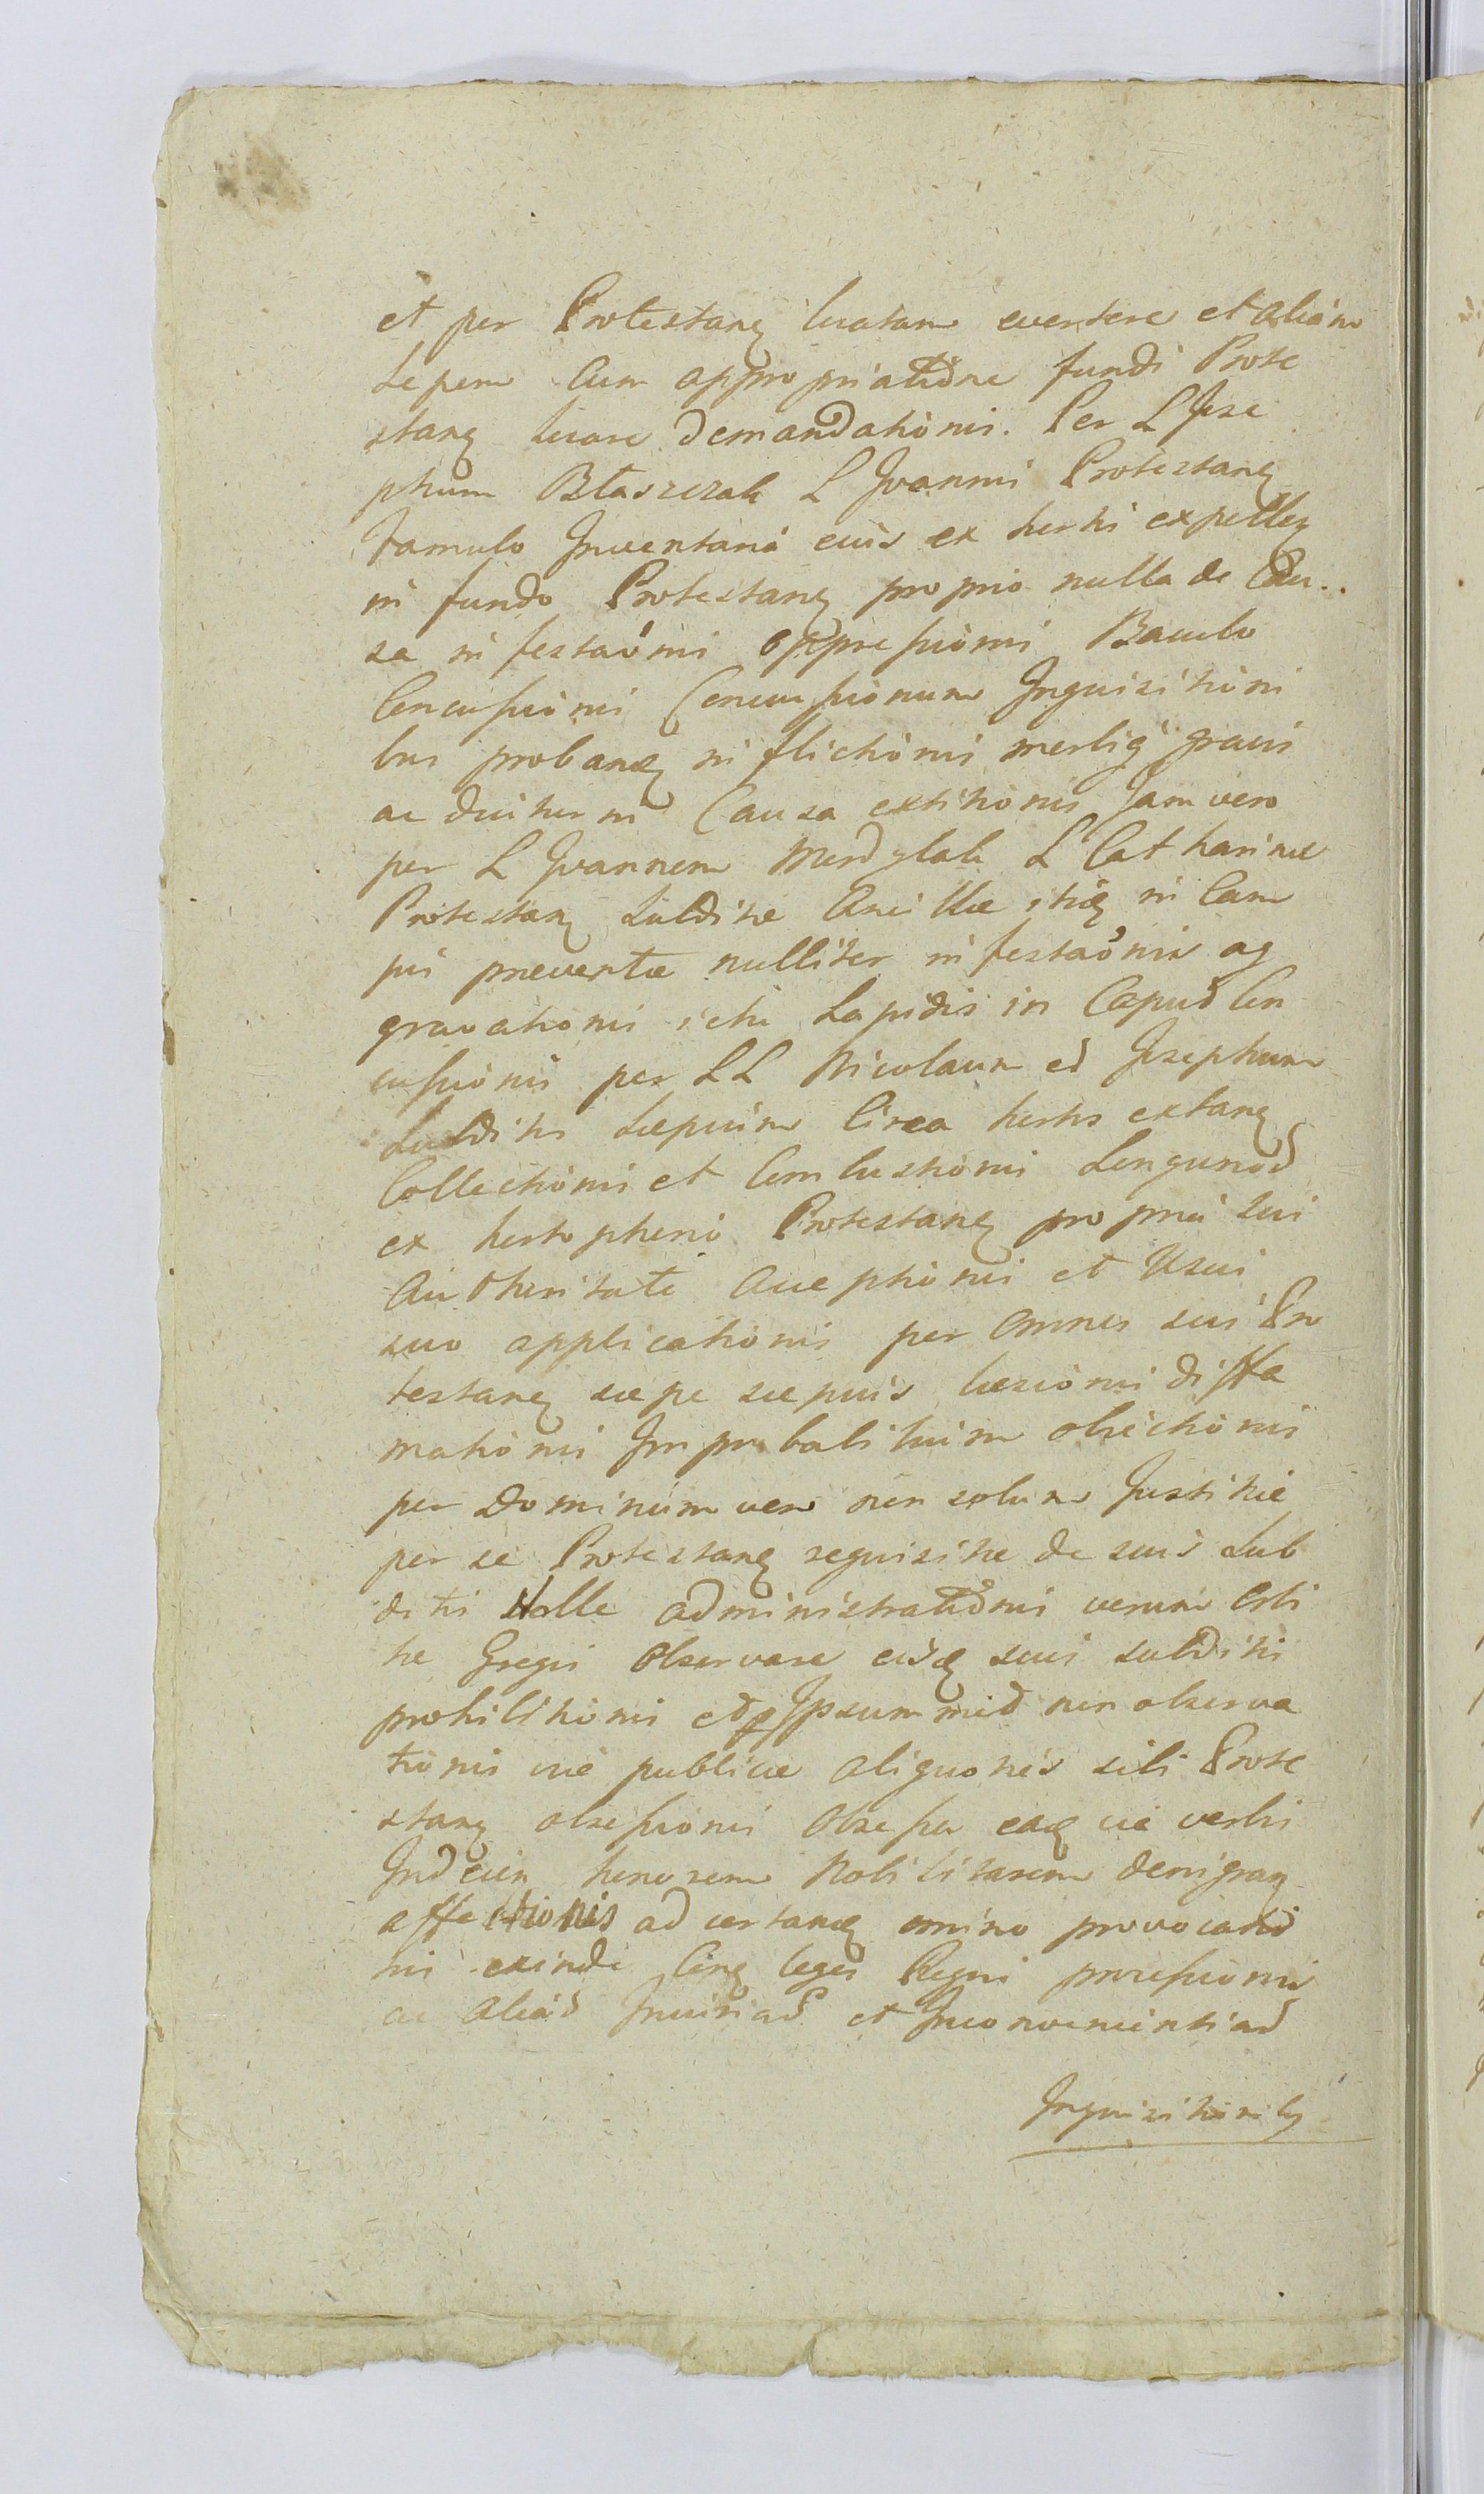 et per Protestanę locatam evertere et aliam
sepem Cum appropriatione fundi Prote
stanę locare demandationis. Per L Jose
phum Błaszczak L Joanni Protestanę
famulo Inventaria eius ex horti expellenę
in fundo Protestanę proprio nulla de Cau..
sa infestaoni oppressionis Baculo
Concussionis Concussionum Inquisitioni
bus probanę inflictionis morbiq gravis
ac diuturni Causa extitionis Jam vero
per L Joannem Mendylak L Catharinæ
Protestanę Subditæ Ancillæ itidę in Cam
pis preventæ nulliter infestaonis ag
gravationis ictu Lapidis in Caput Con
cussionis per LL Nicolaum et Josephum
Subditos Sæpium Circa hortos extanę
Collectionis et Combustionis Longurios
ex horto pheni Protestanę propria sui
Authoritate Acceptionis et Usui
suo applicationis per omnes suis Pro
testanę sæpe sæpius læsionis diffa
mationis Improbabilium obiectionis
per Dominum vero non solum Justitiæ
per se Protestanę requisitæ de suis Sub
ditis Nolle administrationis verum
Gregis observare eidę suis subditis
prohibitionis et p Ipsummet non observa
tionis viæ publicæ aliquoties sibi Prote
stanę obsessionis Obsessa eaę via verbis
Indecen honorem Nobilitarem denigranę
affectionis ad certamę omino provocatio
nis exinde Conę leges Regni processionis
ac alias Iniurias et Inconvenientias
Inquisitionibq